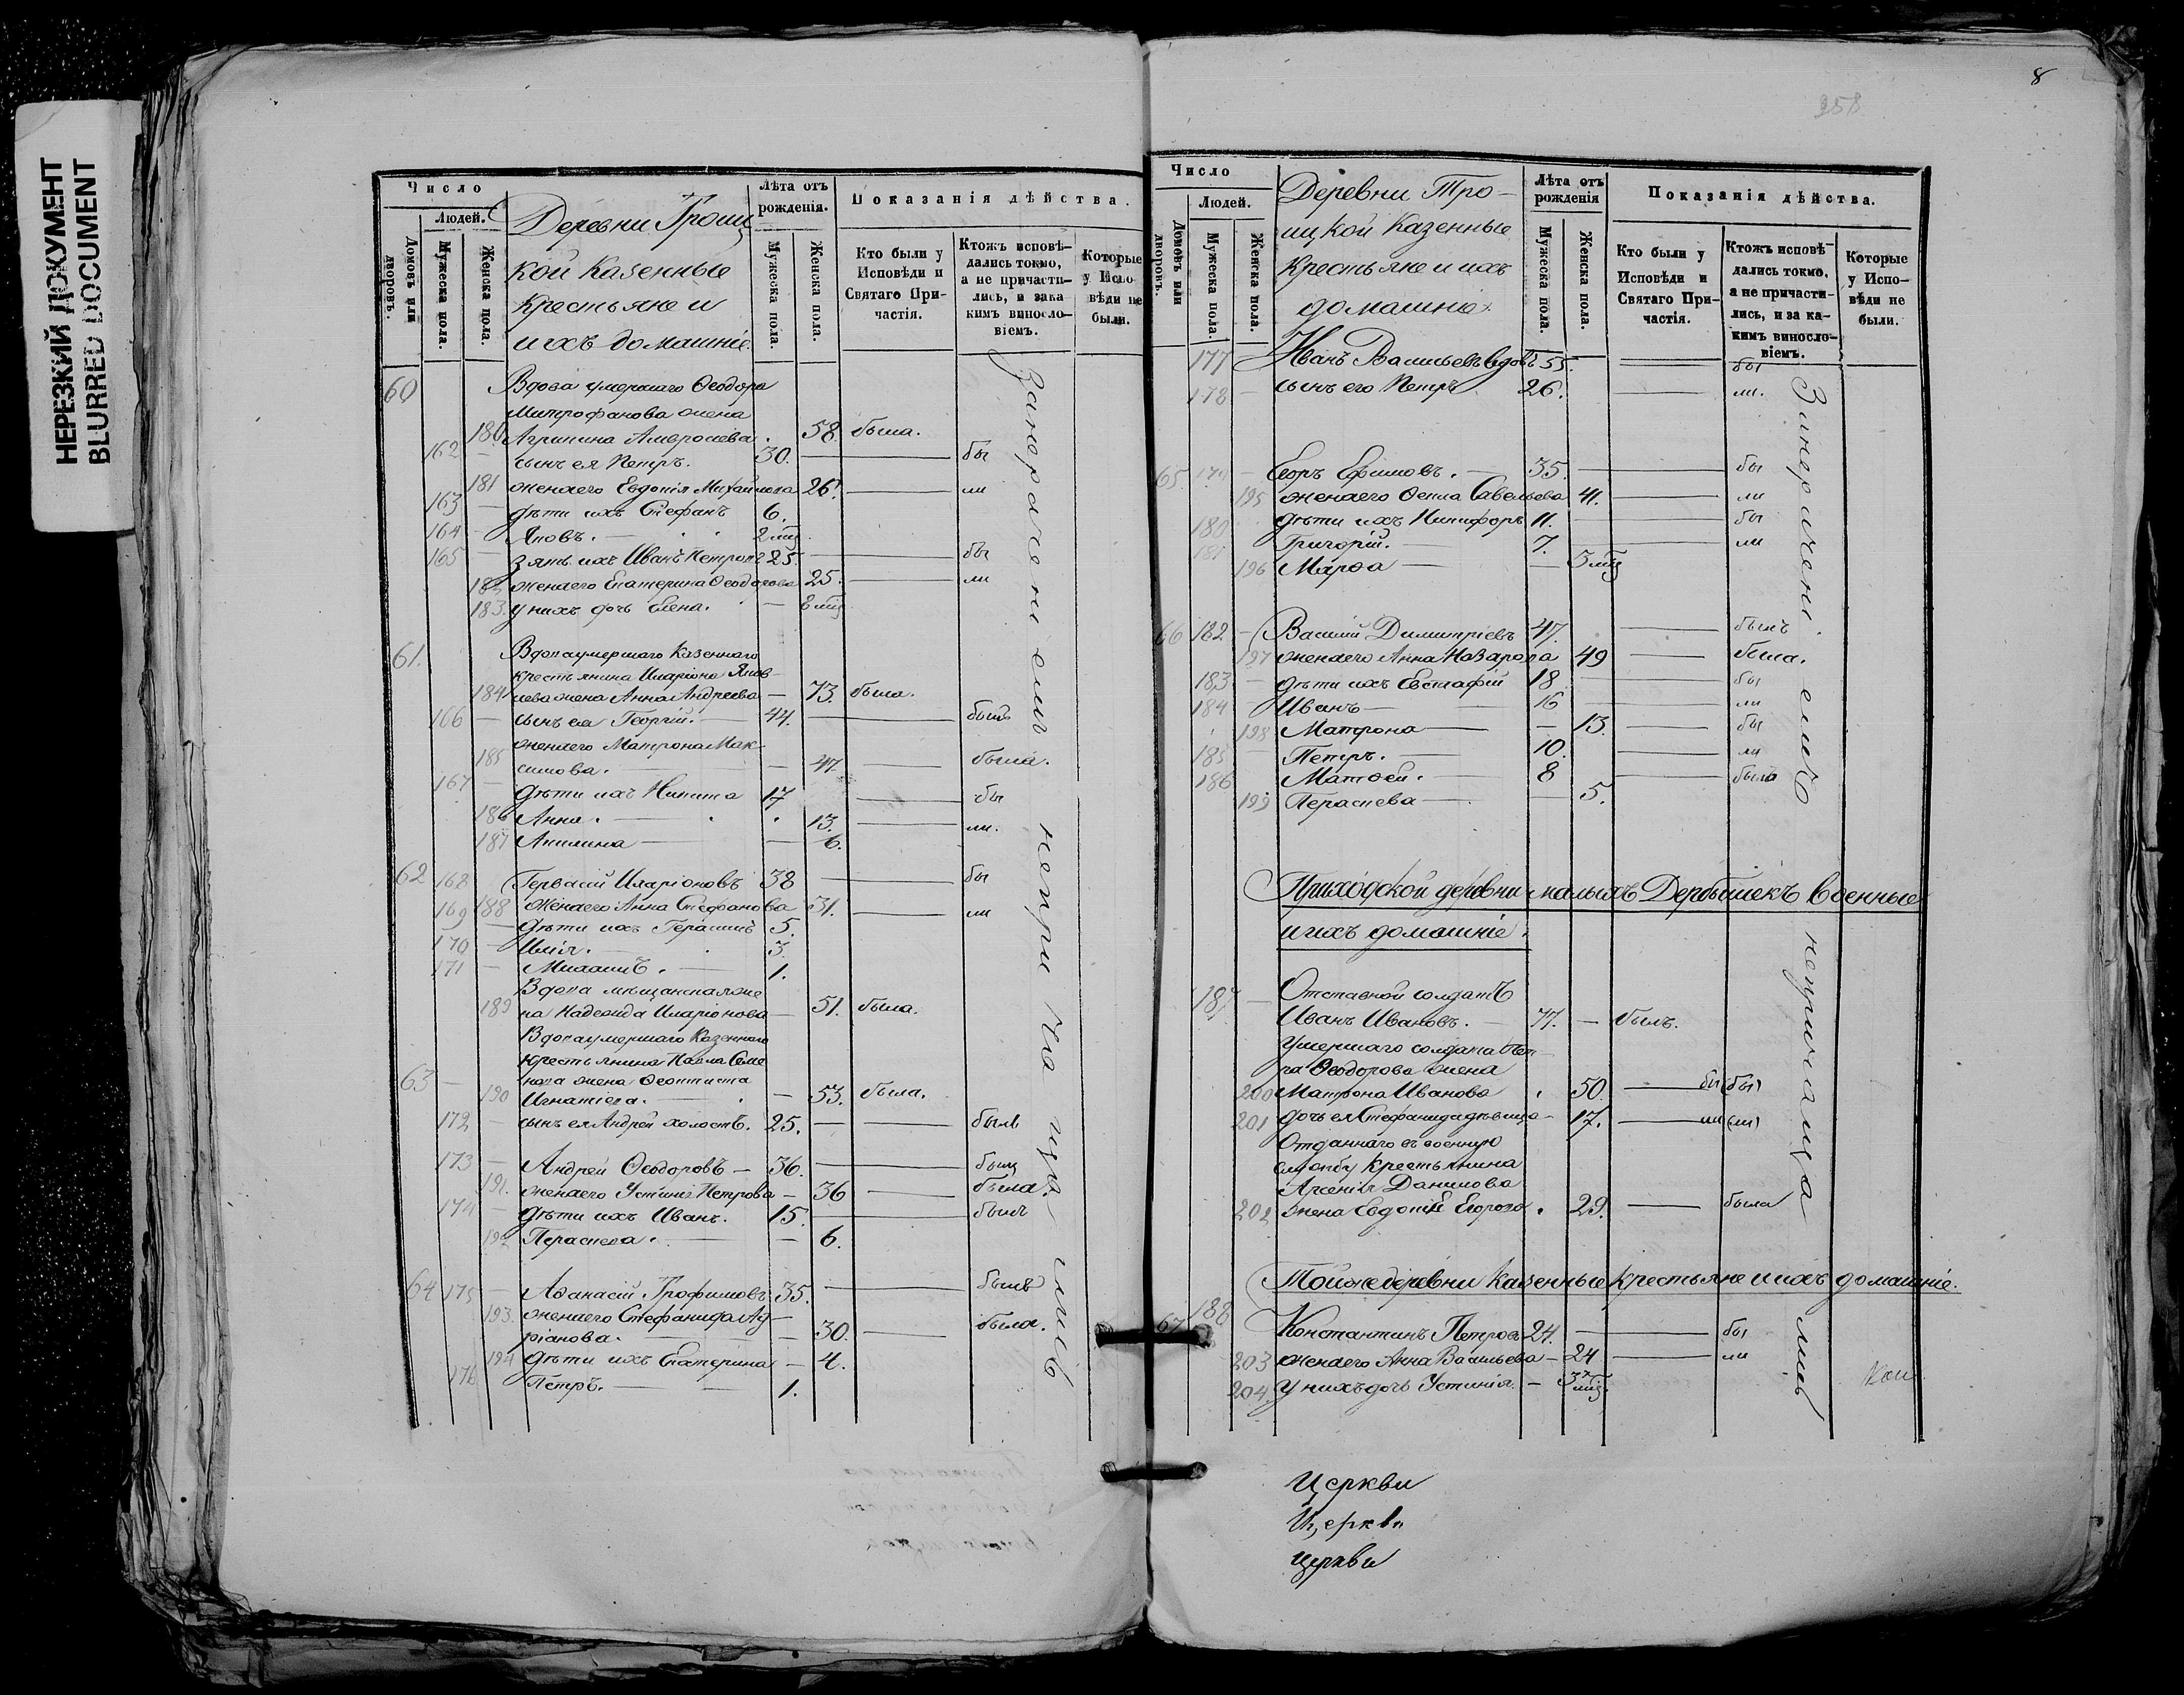 НЕРЕЗКИЙ ДОКУМЕНТ
BLURRED DOCUMENT
Число
Людей.
Домовъ или дворовъ.
Мужеска пола.
Женска пола.
Деревни Троиц
кой Казенные
крестьяне и
ихъ домашніе.
Лѣта отъ рожденія.
Мужеска пола.
Женска пола.
Показанія дѣйства.
Кто были у Исповѣди и Святаго Причастія.
Ктожъ исповѣдались токмо, а не причастились, и зака кимъ винословіемъ.
Которые у Исповѣди не были.
60 Вдова умершаго Ѳеодора
Митрофанова жена
180 Агрипина Амвросіева 58. была.
162 сынъ ея Петръ. 30. бы
181 жена его Евдокія Михайлова 26. ли
163 дѣти ихъ Стефанъ 6.
164 Яковъ. 2 мц
165 зять ихъ Иванъ Петровъ 25. бы
182 жена его Екатерина Ѳеодорова 25. ли
183. у нихъ дочь Елена. 8 мц
61. Вдова умершаго Казеннаго
крестьянина Иларіона Яков
184 лева жена Анна Андреева 73. была.
166 сынъ ея Георгій. 44. былъ
жена его Матрона Мак
185 симова. 47 была.
167 дѣти ихъ Никита 17 бы
186 Анна. 13. ли.
187 Акилина 6.
62 168 Гервасій Иларіоновъ 38 бы
188 жена его Анна Стефанова 31. ли
169 дѣти ихъ Герасимъ 5.
170 Илія. 3.
171 Михаилъ. 1.
Вдова мѣщанская же
189 на Надежда Иларіонова 51. была.
Вдова умершаго Казеннаго
крестьянина Павла Семе
63 нова жена Ѳеоктиста
190 Игнатіева. 53. была.
172 сынъ ея Андрей холостъ. 25. былъ
173 Андрей Ѳеодоровъ 36. былъ
191. жена его Устинія Петрова 36 была
174 дѣти ихъ Иванъ. 15. былъ
192 Параскева. 6.
64 175 Аѳанасій Трофимовъ 35. былъ
193. жена его Стефанида Ад
ріанова. 30. была.
194 дѣти ихъ Екатерина 4.
176 Петръ. 1.
8
358
Число
Людей.
Домовъ или дворовъ.
Мужеска пола.
Женска пола.
Деревни Тро
ицкой Казенные
крестьяне и ихъ
домашніе.
Лѣта отъ рожденія
Мужеска пола.
Женска пола.
Показанія дѣйства.
Кто были у Исповѣди и Святаго Причастія.
Ктожъ исповѣдались токмо, а не причастились, и за какимъ винословіемъ.
Которые у Исповѣди не были.
177 Иванъ Васильевъ вдовъ 55. бы
178 сынъ его Петръ 26. ли.
65. 179 Егоръ Ефимовъ. 35. бы
195 жена его Ѳекла Савельева 41. ли
180 дѣти ихъ Никифоръ 11. бы
181 Григорій. 7. ли
196 Марѳа 3 мц
66 182 Василій Димитріевъ 47. былъ
197 жена его Анна Назарова 49 была.
183 дѣти ихъ Евстафій 18. бы
184 Иванъ 16 ли
198 Матрона 13. бы
185 Петръ. 10. ли
186 Матвей. 8 былъ
199 Параскева 5.
Приходской деревни малыхъ Дербышекъ военные
и ихъ домашніе.
187 Отставной солдатъ
Иванъ Ивановъ. 77. былъ.
Умершаго солдата Пет
ра Ѳеодорова жена
200 Матрона Иванова 50. бы (бы)
201 дочь ея Стефанида дѣвица 17. ли (ли)
Отданнаго въ военную
службу крестьянина
Арсенія Данилова
202 жена Евдокія Егорова 29. была
Той же деревни казенные крестьяне и ихъ домашніе.
67 188 Константинъ Петровъ 24. бы
203 жена его Анна Васильева 24 ли
204 у нихъ дочь Устинія. 3 мц.
Церкви
Церкви
Церкви